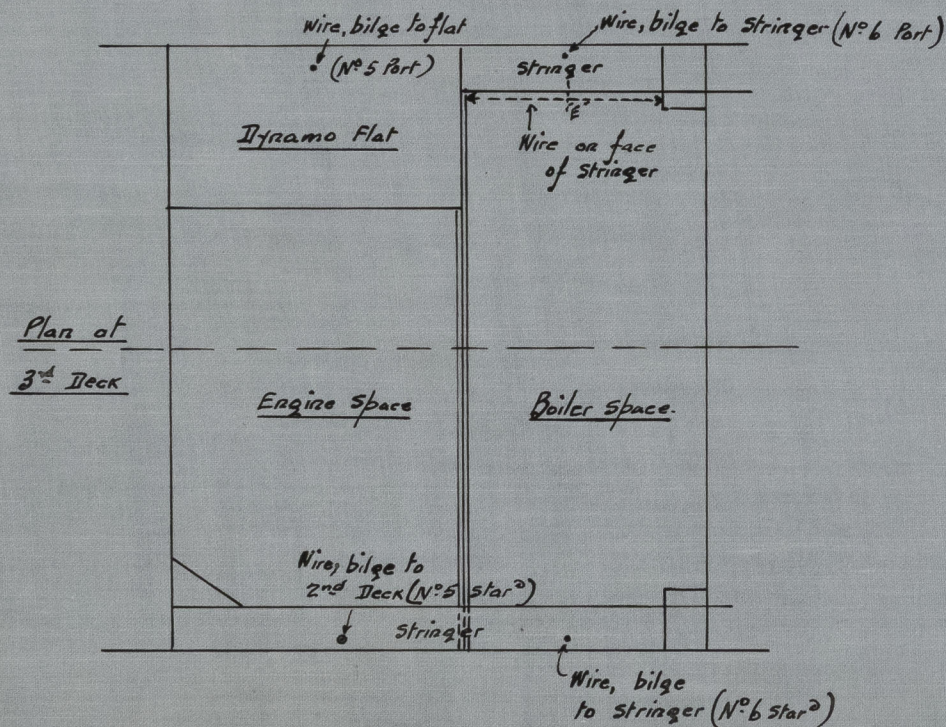 Wire, bilge to flat
(Nº 5 Port)
Wire, bilge to Stringer (Nº 6 Port)
Stringer
"E"
Wire on face
of Stringer
Dynamo Flat
Plan at
3rd Deck
Engine Space
Boiler Space.
Wire, bilge to
2nd Deck (Nº 5 Starᵈ)
Stringer
Wire, bilge
to Stringer (Nº 6 Starᵈ)